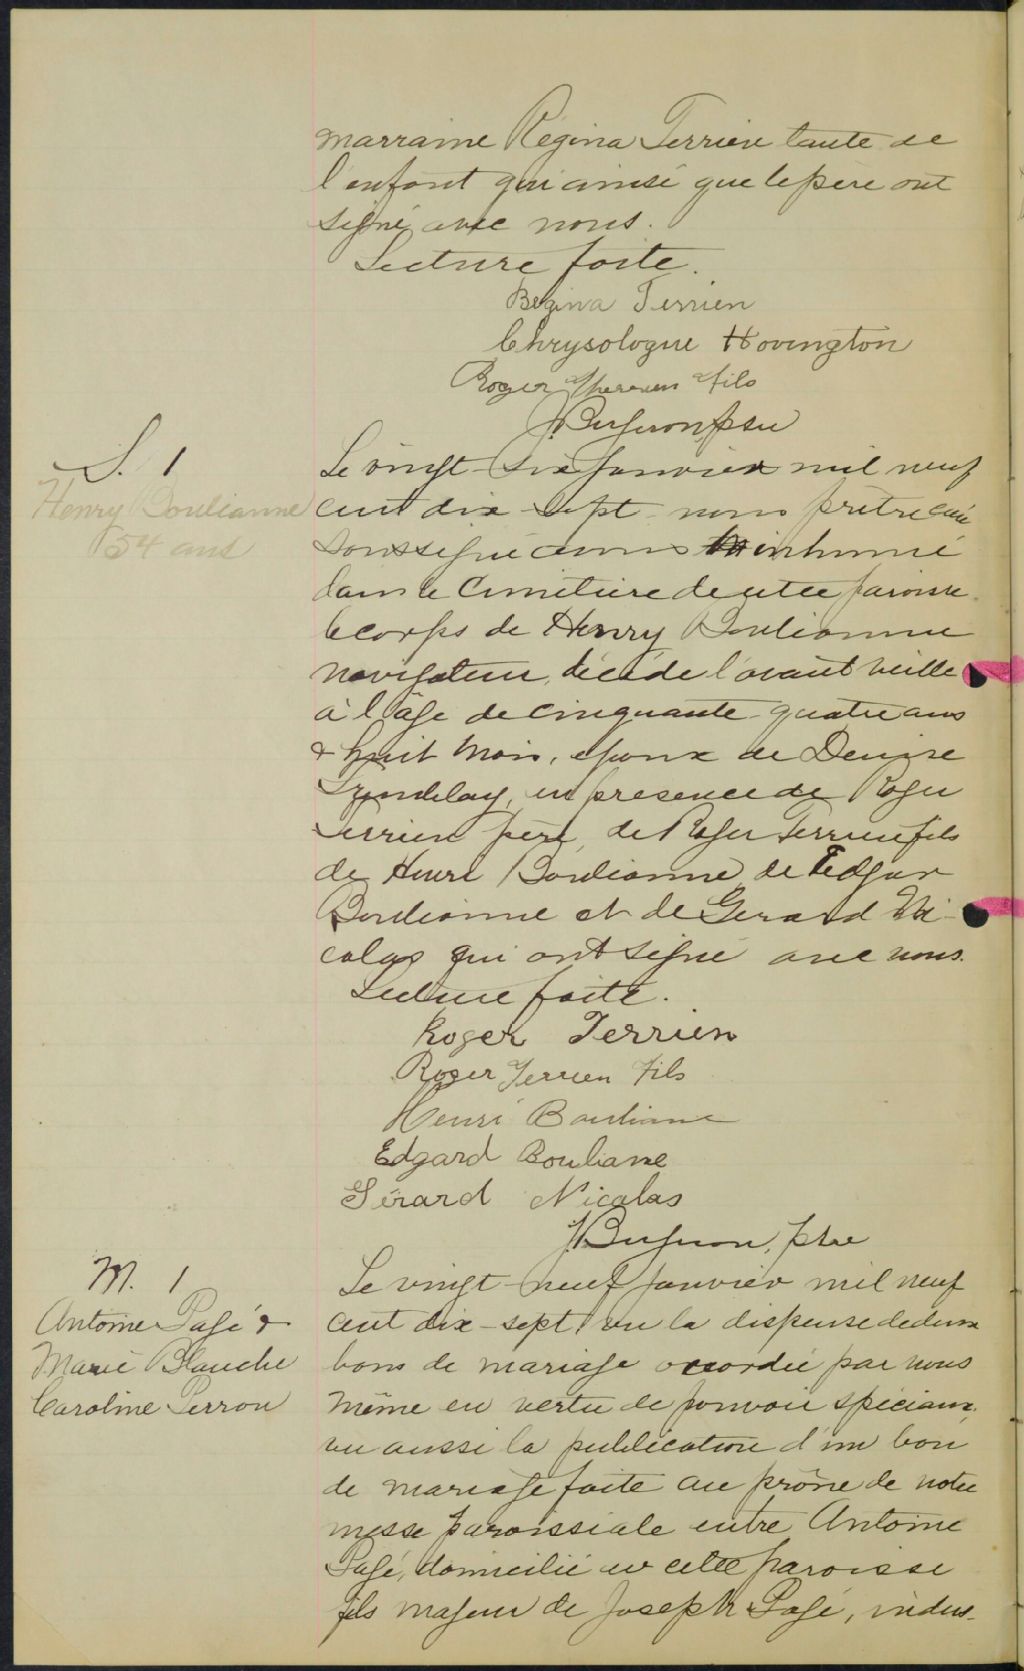 marraine Régina Terrien tante de
l'enfant qui ainsi que le père ont
signé avec nous.
Lecture faite.
Régina Terrien
Chrysologue Hovington
Roger Therrien Fils
ptre
S. 1
Henry Boulianne
54 ans
Le vingt-six janvier mil neuf
cent dix-sept nous prêtre curé
soussigné avons inhumé
dans le cimetière de cette paroisse
le corps de Henry Boulianne
navigateur, décédé l'avant veille
à l'âge de cinquante-quatre ans
& huit mois, époux de Denise
Tremblay, en présence de Roger
Terrien père, de Roger Terrien fils
de Henri Boulianne, de Edgar
Boulianne et de Gerard Ni-
colas qui ont signé avec nous.
Lecture faite.
Roger Terrien
Roger Terrien Fils
Henri Bouliane
Edgard Bouliane
Gérard Nicolas
ptre
M. 1
Antoine Pagé &
Marie Blanche
Caroline Perron
Le vingt-neuf janvier mil neuf
cent dix-sept, vu la dispense de deux
bans de mariage accordée par nous
même en vertu de pouvoir spéciaux,
vu aussi la publication d'un ban
de mariage faite au prône de notre
messe paroissiale entre Antoine
Pagé, domicilié en cette paroisse
fils majeur de Joseph Pagé, indus-